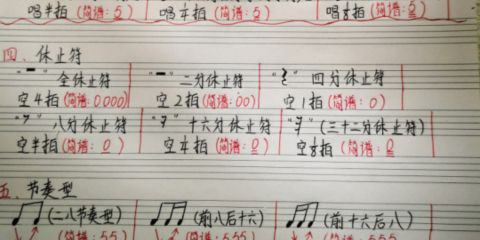 唱半拍(简谱:5) 唱¼拍(简谱:5) 唱⅛拍(简谱:5)
四、休止符
"" 全休止符 "" 二分休止符 "" 四分休止符
空4拍(简谱:0.000) 空2拍(简谱:00) 空1拍(简谱:0)
"" 八分休止符 "" 十六分休止符 "" (三十二分休止符)
空半拍(简谱:0) 空¼拍(简谱:0) 空⅛拍(简谱:0)
五、节奏型
(二八节奏型) (前八后十六) (前十六后八)
(简谱:55) (简谱:555) (简谱:555)